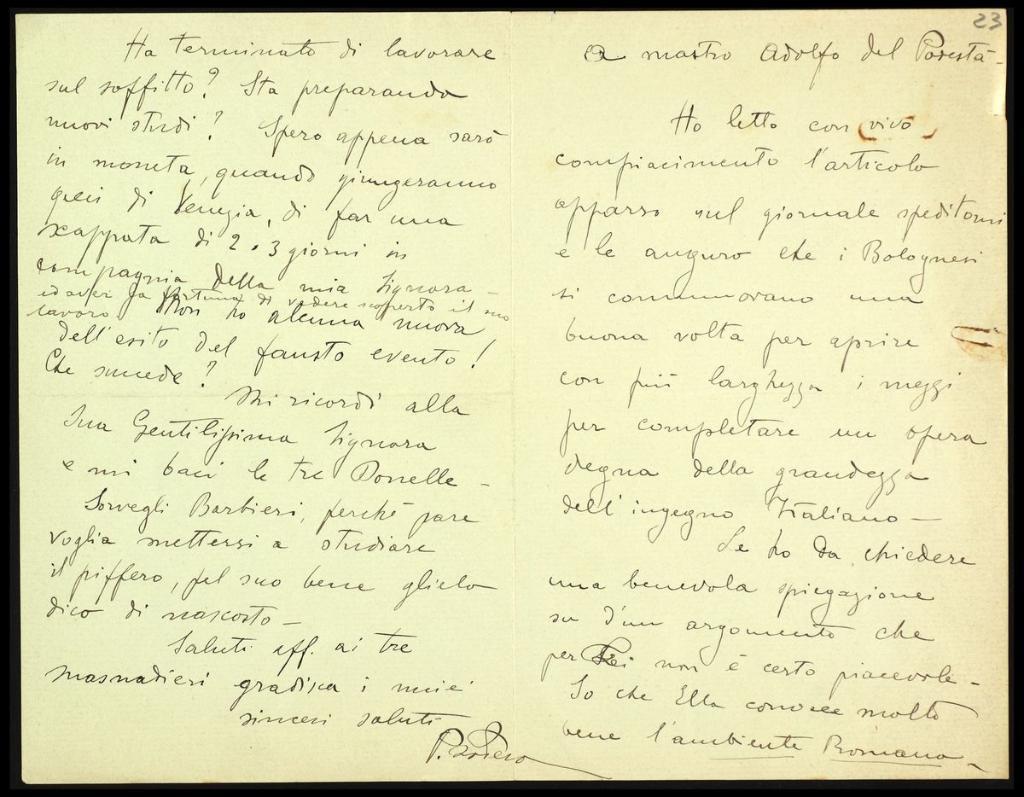 Ha terminato di lavorare
sul soffitto? Sta preparando
nuovi studi? Spero appena sarò
in moneta, quando giungeranno
quei di Venezia, di far una
scappata di 2 o 3 giorni in
compagnia della mia Signora -
ed aver la fortuna di vedere scoperto il suo
lavoro Non ho alcuna nuova
dell'esito del fausto evento!
Che succede?
Mi ricordi alla
Sua Gentilissima Signora
e mi baci le tre Donelle -
Sorvegli Barbieri, perché pare
voglia mettersi a studiare
il piffero, pel suo bene glielo
dico di nascosto -
Saluti aff. ai tre
masnadieri gradisca i miei
sinceri saluti
23
A mastro Adolfo del Podestà -
Ho letto con vivo
compiacimento l'articolo
apparso sul giornale speditomi
e le auguro che i Bolognesi
si commuovano una
buona volta per aprire
con più larghezza i mezzi
per completare un opera
degna della grandezza
dell'ingegno Italiano -
Le ho da chiedere
una benevola spiegazione
su d'un argomento che
per Lei non è certo piacevole -
So che Ella conosce molto
bene l'ambiente Romano -